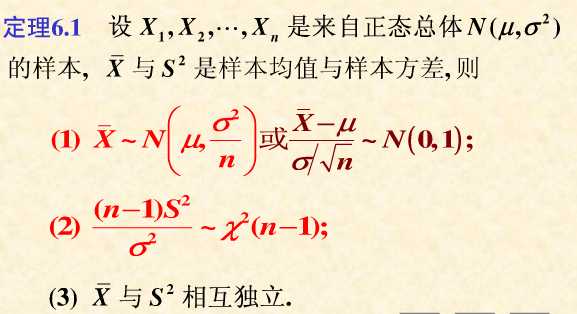 定理6.1 设 X₁,X₂,⋯,Xₙ 是来自正态总体 N(μ,σ²)
的样本, X̄ 与 S² 是样本均值与样本方差,则
(1) X̄ ~ N(μ, σ²/n) 或 (X̄−μ)/(σ/√n) ~ N(0,1);
(2) (n−1)S²/σ² ~ χ²(n−1);
(3) X̄ 与 S² 相互独立.